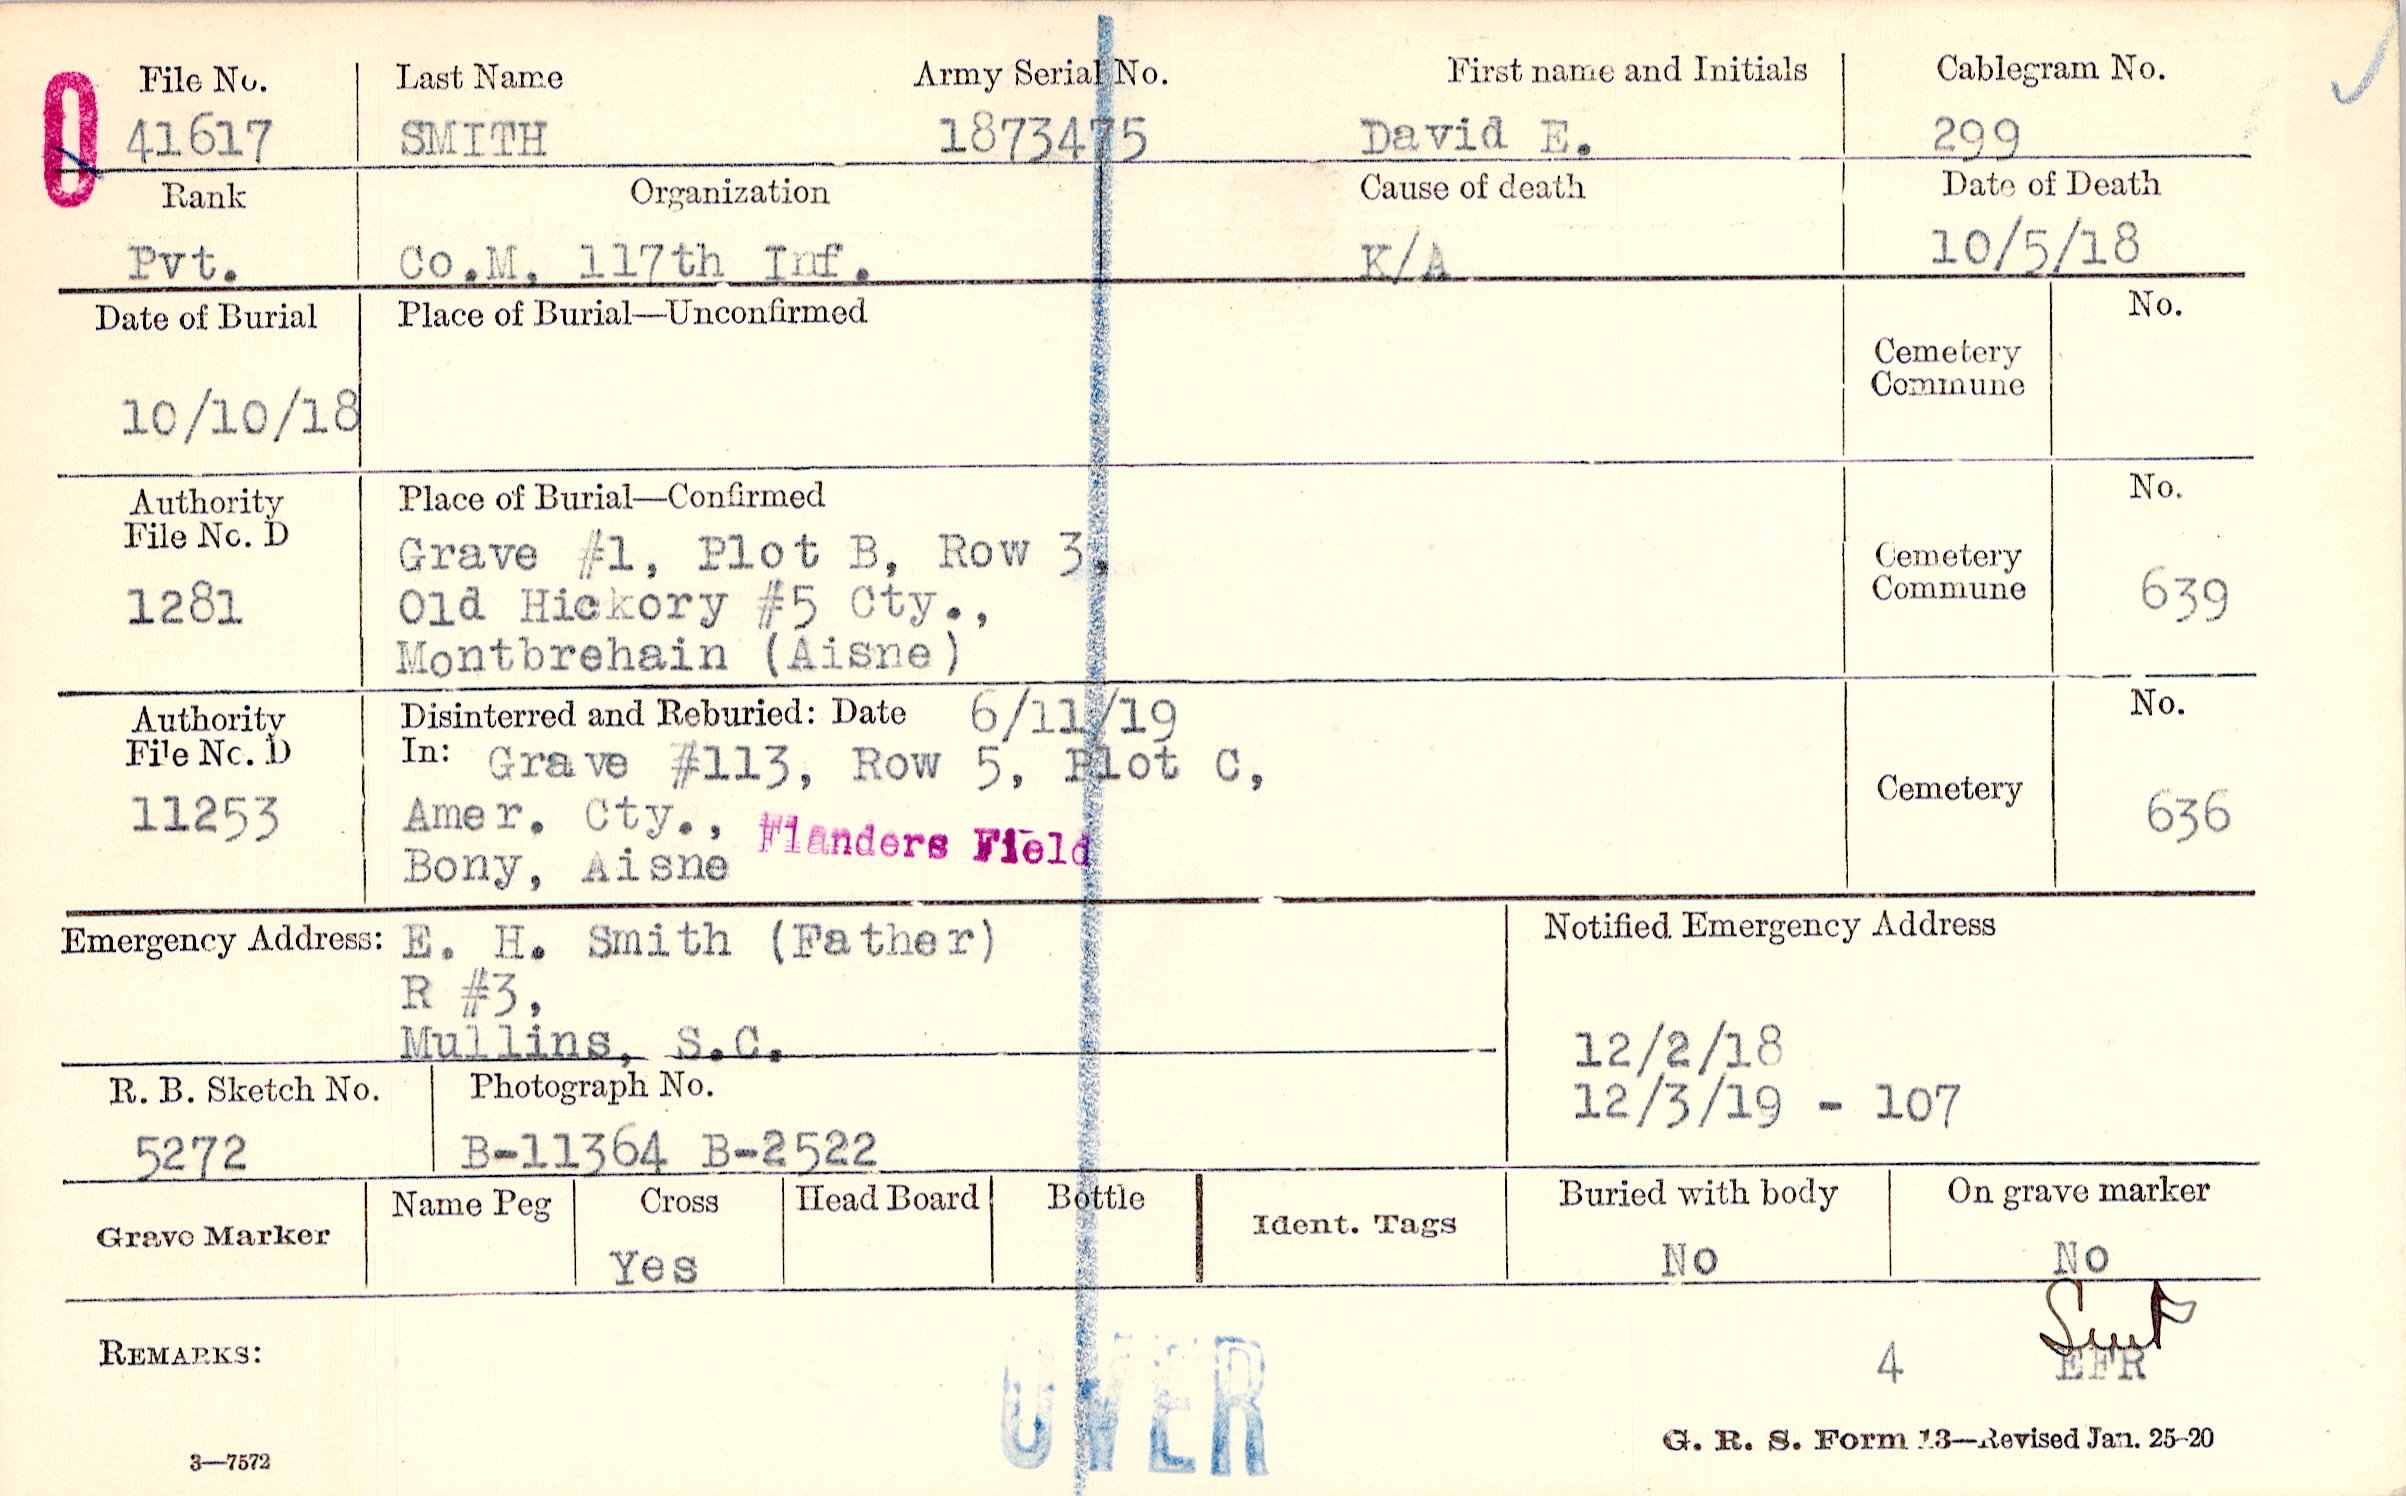 File No. Last Name Army Serial No. First name and Initials Cablegram No.
41617 SMITH 1873475 David E. 299
Rank Organization Cause of death Date of Death
Pvt. Co.M, 117th Inf. K/A 10/5/18
Date of Burial Place of Burial—Unconfirmed No.
Cemetery
Commune
10/10/18
Authority Place of Burial—Confirmed No.
File No. D
Grave #1, Plot B, Row 3, Cemetery
1281 Old Hickory #5 Cty., Commune 639
Montbrehain (Aisne)
Authority Disinterred and Reburied: Date 6/11/19 No.
File No. D In: Grave #113, Row 5, Plot C,
11253 Amer. Cty., Flanders Field Cemetery 636
Bony, Aisne
Emergency Address: E. H. Smith (Father) Notified Emergency Address
R #3,
Mullins, S.C. 12/2/18
R. B. Sketch No. Photograph No. 12/3/19 - 107
5272 B-11364 B-2522
Grave Marker Name Peg Cross Head Board Bottle Ident. Tags Buried with body On grave marker
Yes No No
REMARKS: OVER 4 EFR
3—7572 G. R. S. Form 13—Revised Jan. 25-20